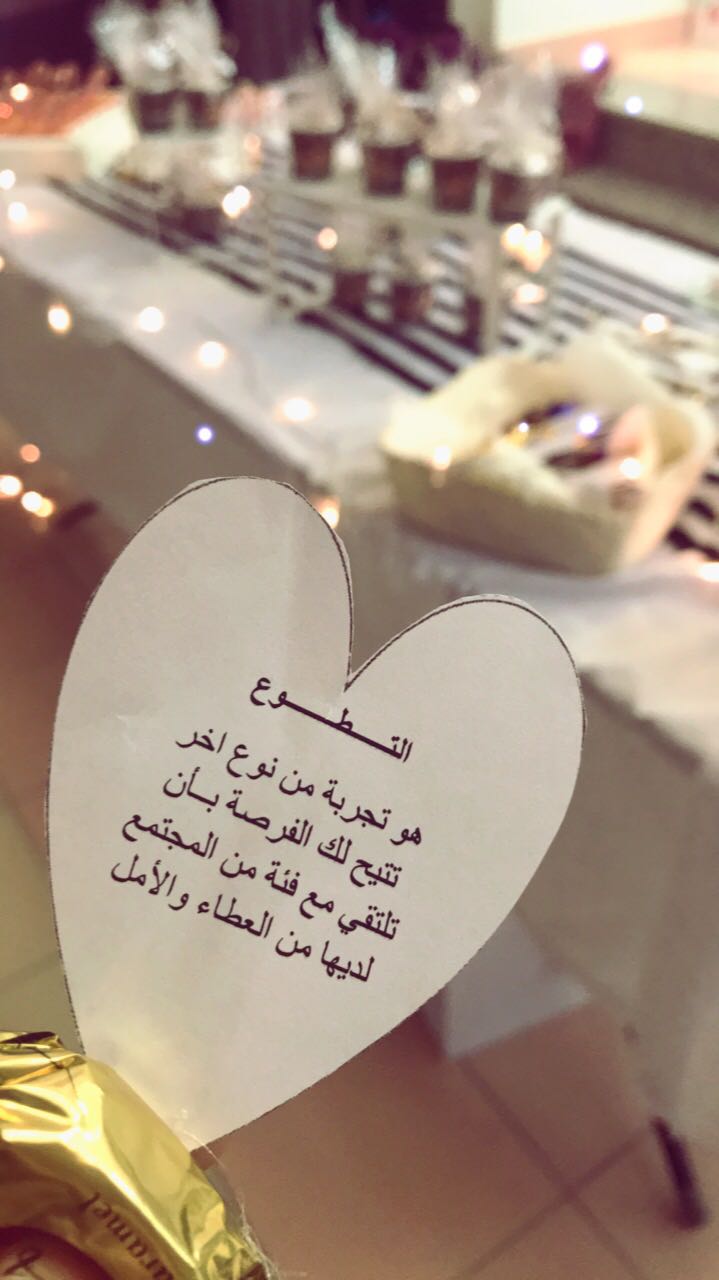 التـــطـــوع
هو تجربة من نوع اخر
تتيح لك الفرصة بـأن
تلتقي مع فئة من المجتمع
لديها من العطاء والأمل
aramel